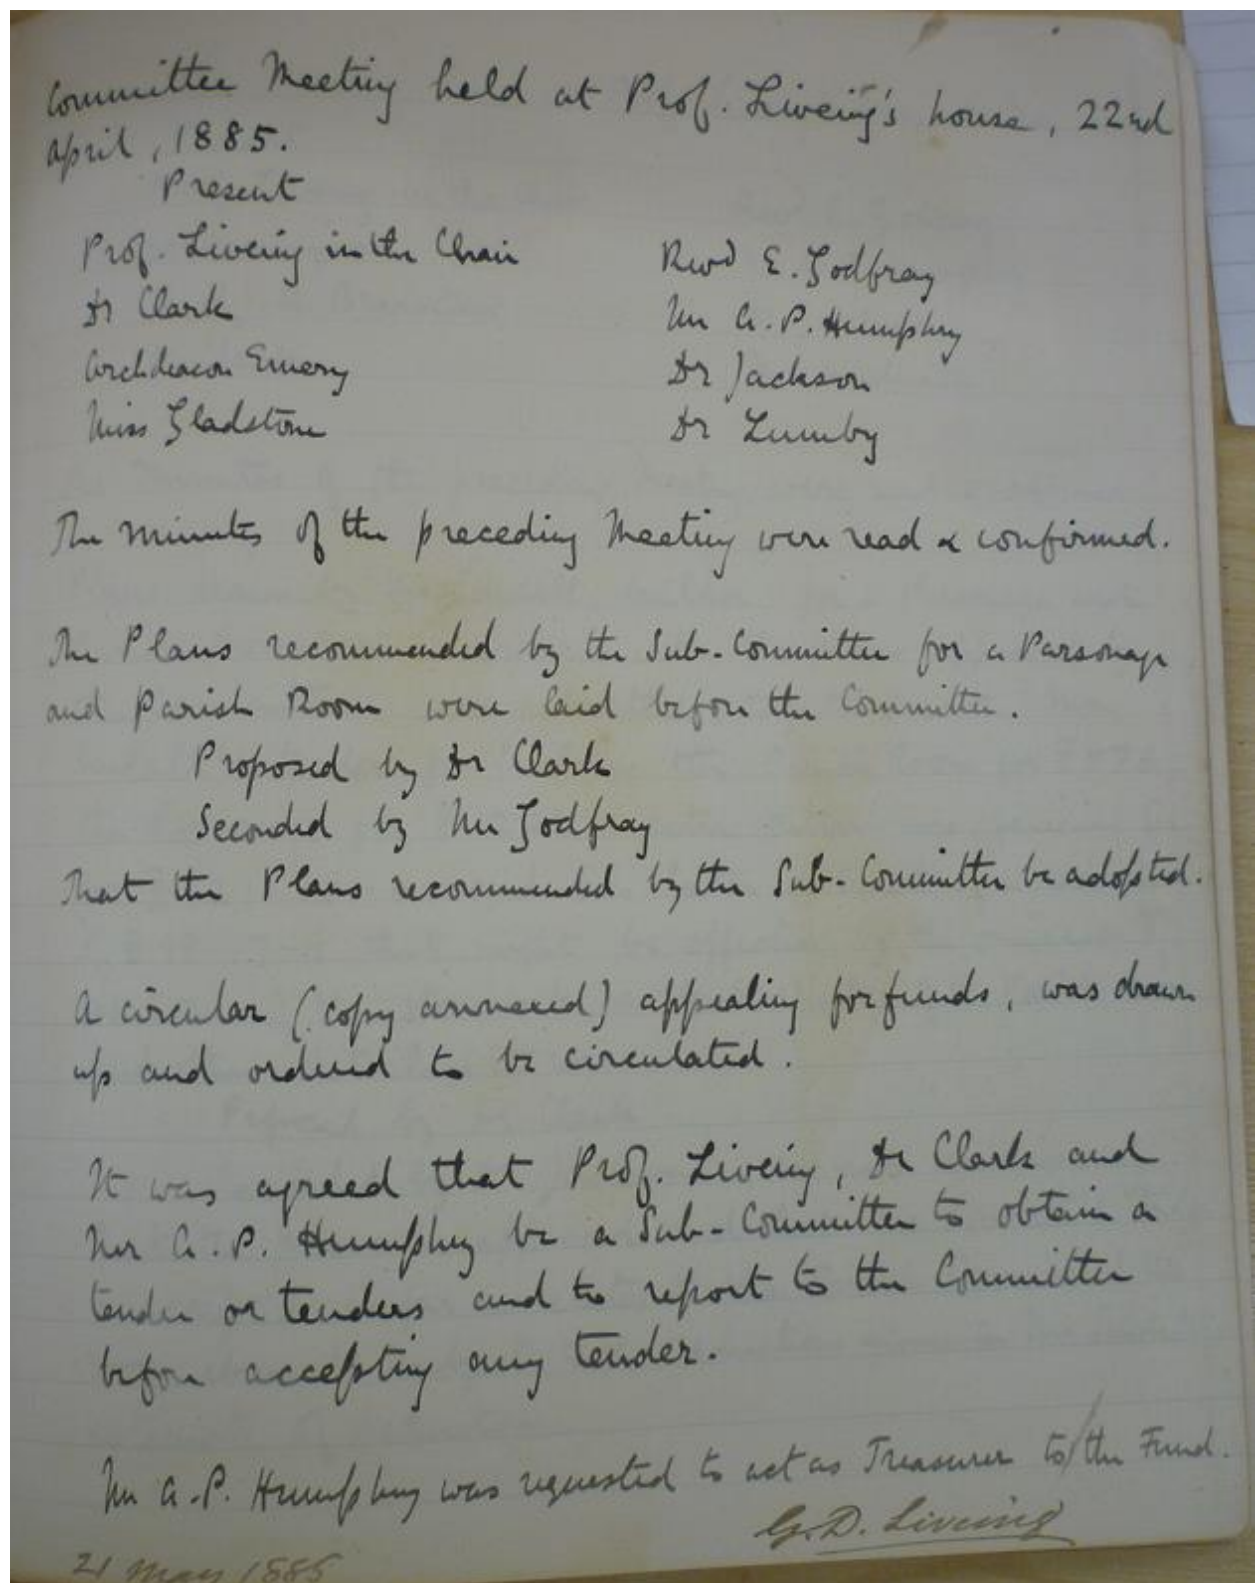 Committee Meeting held at Prof. Liveing's house, 22nd
April, 1885.
Present
Prof. Liveing in the Chair
Dr Clark
Archdeacon Emery
Miss Gladstone
Revd E. Godfray
Mr A. P. Humphry
Dr Jackson
Dr Lumby
The Minutes of the preceding Meeting were read & confirmed.
The Plans recommended by the Sub-Committee for a Parsonage
and Parish Room were laid before the Committee.
Proposed by Dr Clark
Seconded by Mr Godfray
That the Plans recommended by the Sub-Committee be adopted.
A circular (copy annexed) appealing for funds, was drawn
up and ordered to be circulated.
It was agreed that Prof. Liveing, Dr Clark and
Mr A. P. Humphry be a Sub-Committee to obtain a
tender or tenders and to report to the Committee
before accepting any tender.
Mr A. P. Humphry was requested to act as Treasurer to the Fund.
G. D. Liveing
21 May 1885